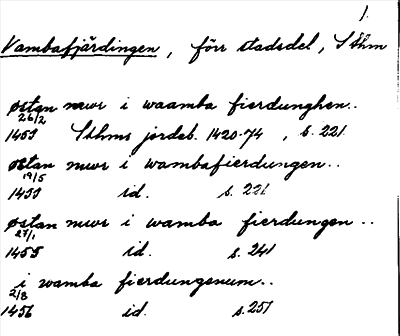 1.
Vambafjärdingen, förr stadsdel, Sthm
østan mwr i waamba fierdunghen..
26/2
1453 Sthms jordeb. 1420-74, s. 221.
østan mwr i wambafierdungen..
19/5
1453 id. s. 221
østan mwr i wamba fierdungen..
27/1
1455 id. s. 241
i wamba fierdungenum..
2/8
1456 id. s. 251